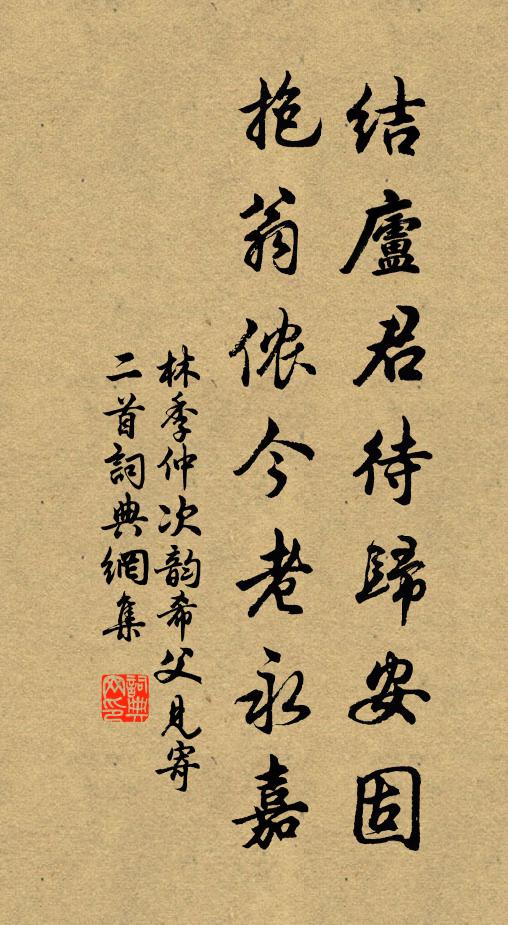 结廬君待歸安固
抱翁侬今老永嘉
林季仲次韵希父見寄
二首詞典網集